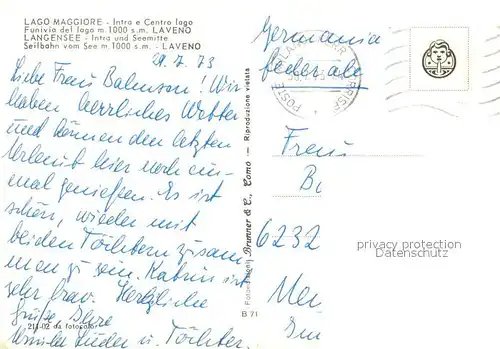 LAGO MAGGIORE - Intra e Centro lago
Funivia del lago m. 1000 s.m. LAVENO
LANGENSEE - Intra und Seemitte
Seilbahn vom See m. 1000 s.m. - LAVENO
29.7.73
Germania
federale
Liebe Frau Bahnson! Wir
haben herrliches Wetter
und können den letzten
Urlaub hier noch ein-
mal genießen. Es ist
schön, wieder mit
beiden Töchtern zusam
men zu sein. Katrin ist
sehr brav. Herzliche
Grüße Ihre
Lüder u. Töchter.
211-02 da fotocolor
Brunner & C., Como - Riproduzione vietata
B 71
POSTE
Frau
B
6232
privacy protection
Datenschutz